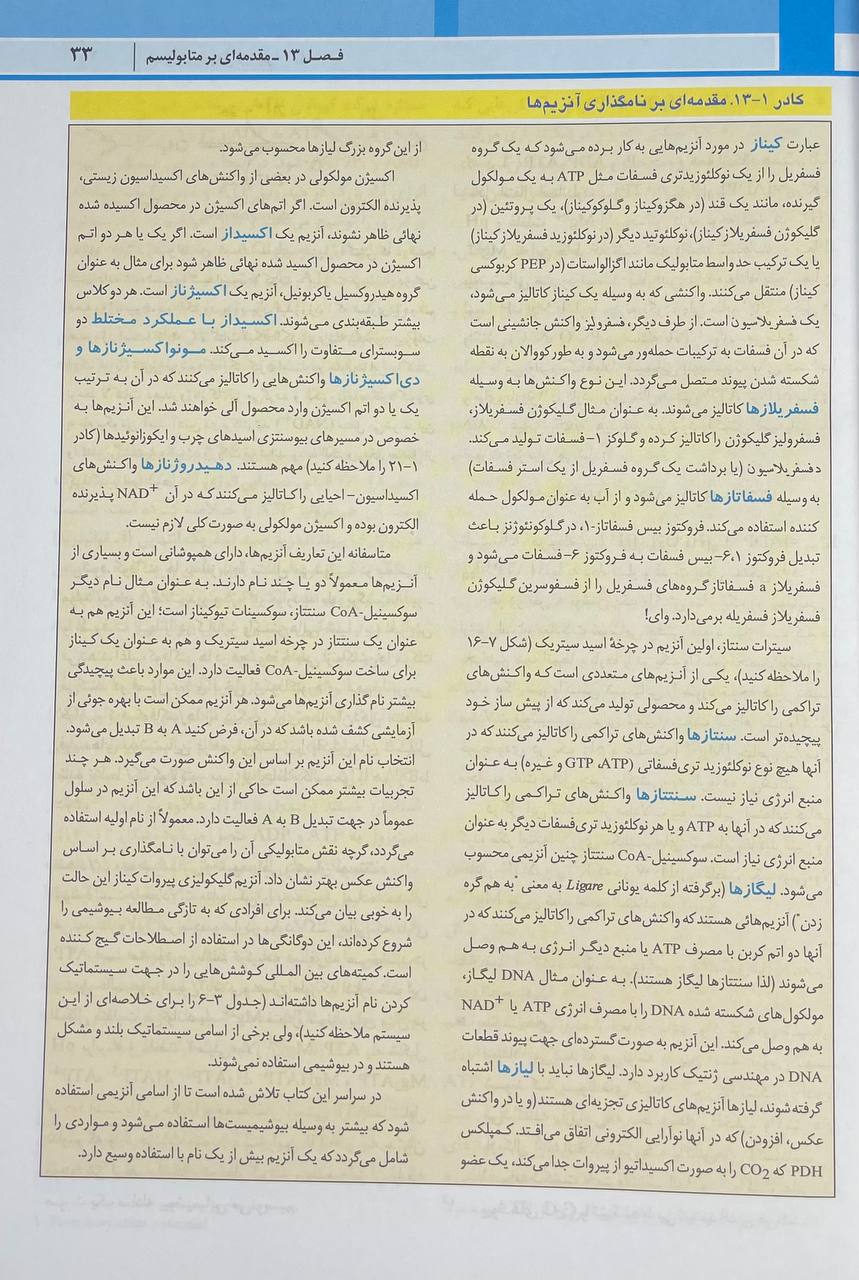 فصل ۱۳ - مقدمه‌ای بر متابولیسم
۳۳
کادر ۱-۱۳. مقدمه‌ای بر نامگذاری آنزیم‌ها
عبارت کیناز در مورد آنزیم‌هایی به کار برده می‌شود که یک گروه
فسفریل را از یک نوکلئوزیدتری فسفات مثل ATP به یک مولکول
گیرنده، مانند یک قند (در هگزوکیناز و گلوکوکیناز)، یک پروتئین (در
گلیکوژن فسفریلاز کیناز)، نوکلئوتید دیگر (در نوکلئوزید فسفریلاز کیناز)
یا یک ترکیب حد واسط متابولیک مانند اگزالواستات (در PEP کربوکسی
کیناز) منتقل می‌کنند. واکنشی که به وسیله یک کیناز کاتالیز می‌شود،
یک فسفریلاسیون است. از طرف دیگر، فسفرولیز واکنش جانشینی است
که در آن فسفات به ترکیبات حمله‌ور می‌شود و به طور کووالان به نقطه
شکسته شدن پیوند متصل می‌گردد. این نوع واکنش‌ها به وسیله
فسفریلازها کاتالیز می‌شوند. به عنوان مثال گلیکوژن فسفریلاز،
فسفرولیز گلیکوژن را کاتالیز کرده و گلوکز ۱-فسفات تولید می‌کند.
دفسفریلاسیون (یا برداشت یک گروه فسفریل از یک استر فسفات)
به وسیله فسفاتازها کاتالیز می‌شود و از آب به عنوان مولکول حمله
کننده استفاده می‌کند. فروکتوز بیس فسفاتاز-۱، در گلوکونئوژنز باعث
تبدیل فروکتوز ۶،۱-بیس فسفات به فروکتوز ۶-فسفات می‌شود و
فسفریلاز a فسفاتاز گروه‌های فسفریل را از فسفوسرین گلیکوژن
فسفریلاز فسفریله برمی‌دارد. وای!
سیترات سنتاز، اولین آنزیم در چرخهٔ اسید سیتریک (شکل ۷-۱۶
را ملاحظه کنید)، یکی از آنزیم‌های متعددی است که واکنش‌های
تراکمی را کاتالیز می‌کند و محصولی تولید می‌کند که از پیش ساز خود
پیچیده‌تر است. سنتازها واکنش‌های تراکمی را کاتالیز می‌کنند که در
آنها هیچ نوع نوکلئوزید تری‌فسفاتی (GTP ،ATP و غیره) به عنوان
منبع انرژی نیاز نیست. سنتتازها واکنش‌های تراکمی را کاتالیز
می‌کنند که در آنها به ATP و یا هر نوکلئوزید تری‌فسفات دیگر به عنوان
منبع انرژی نیاز است. سوکسینیل-CoA سنتتاز چنین آنزیمی محسوب
می‌شود. لیگازها (برگرفته از کلمه یونانی Ligare به معنی "به هم گره
زدن") آنزیم‌هائی هستند که واکنش‌های تراکمی را کاتالیز می‌کنند که در
آنها دو اتم کربن با مصرف ATP یا منبع دیگر انرژی به هم وصل
می‌شوند (لذا سنتتازها لیگاز هستند). به عنوان مثال DNA لیگاز،
مولکول‌های شکسته شده DNA را با مصرف انرژی ATP یا NAD⁺
به هم وصل می‌کند. این آنزیم به صورت گسترده‌ای جهت پیوند قطعات
DNA در مهندسی ژنتیک کاربرد دارد. لیگازها نباید با لیازها اشتباه
گرفته شوند، لیازها آنزیم‌های کاتالیزی تجزیه‌ای هستند (و یا در واکنش
عکس، افزودن) که در آنها نوآرایی الکترونی اتفاق می‌افتد. کمپلکس
PDH که CO₂ را به صورت اکسیداتیو از پیروات جدا می‌کند، یک عضو
از این گروه بزرگ لیازها محسوب می‌شود.
اکسیژن مولکولی در بعضی از واکنش‌های اکسیداسیون زیستی،
پذیرنده الکترون است. اگر اتم‌های اکسیژن در محصول اکسیده شده
نهائی ظاهر نشوند، آنزیم یک اکسیداز است. اگر یک یا هر دو اتم
اکسیژن در محصول اکسید شده نهائی ظاهر شود برای مثال به عنوان
گروه هیدروکسیل یا کربونیل، آنزیم یک اکسیژناز است. هر دو کلاس
بیشتر طبقه‌بندی می‌شوند. اکسیداز با عملکرد مختلط دو
سوبسترای متفاوت را اکسید می‌کند. مونواکسیژنازها و
دی‌اکسیژنازها واکنش‌هایی را کاتالیز می‌کنند که در آن به ترتیب
یک یا دو اتم اکسیژن وارد محصول آلی خواهند شد. این آنزیم‌ها به
خصوص در مسیرهای بیوسنتزی اسیدهای چرب و ایکوزانوئیدها (کادر
۱-۲۱ را ملاحظه کنید) مهم هستند. دهیدروژنازها واکنش‌های
اکسیداسیون-احیایی را کاتالیز می‌کنند که در آن NAD⁺ پذیرنده
الکترون بوده و اکسیژن مولکولی به صورت کلی لازم نیست.
متاسفانه این تعاریف آنزیم‌ها، دارای همپوشانی است و بسیاری از
آنزیم‌ها معمولاً دو یا چند نام دارند. به عنوان مثال نام دیگر
سوکسینیل-CoA سنتتاز، سوکسینات تیوکیناز است؛ این آنزیم هم به
عنوان یک سنتتاز در چرخه اسید سیتریک و هم به عنوان یک کیناز
برای ساخت سوکسینیل-CoA فعالیت دارد. این موارد باعث پیچیدگی
بیشتر نام گذاری آنزیم‌ها می‌شود. هر آنزیم ممکن است با بهره جوئی از
آزمایشی کشف شده باشد که در آن، فرض کنید A به B تبدیل می‌شود.
انتخاب نام این آنزیم بر اساس این واکنش صورت می‌گیرد. هر چند
تجربیات بیشتر ممکن است حاکی از این باشد که این آنزیم در سلول
عموماً در جهت تبدیل B به A فعالیت دارد. معمولاً از نام اولیه استفاده
می‌گردد، گرچه نقش متابولیکی آن را می‌توان با نامگذاری بر اساس
واکنش عکس بهتر نشان داد. آنزیم گلیکولیزی پیروات کیناز این حالت
را به خوبی بیان می‌کند. برای افرادی که به تازگی مطالعه بیوشیمی را
شروع کرده‌اند، این دوگانگی‌ها در استفاده از اصطلاحات گیج کننده
است. کمیته‌های بین المللی کوشش‌هایی را در جهت سیستماتیک
کردن نام آنزیم‌ها داشته‌اند (جدول ۳-۶ را برای خلاصه‌ای از این
سیستم ملاحظه کنید)، ولی برخی از اسامی سیستماتیک بلند و مشکل
هستند و در بیوشیمی استفاده نمی‌شوند.
در سراسر این کتاب تلاش شده است تا از اسامی آنزیمی استفاده
شود که بیشتر به وسیله بیوشیمیست‌ها استفاده می‌شود و مواردی را
شامل می‌گردد که یک آنزیم بیش از یک نام با استفاده وسیع دارد.